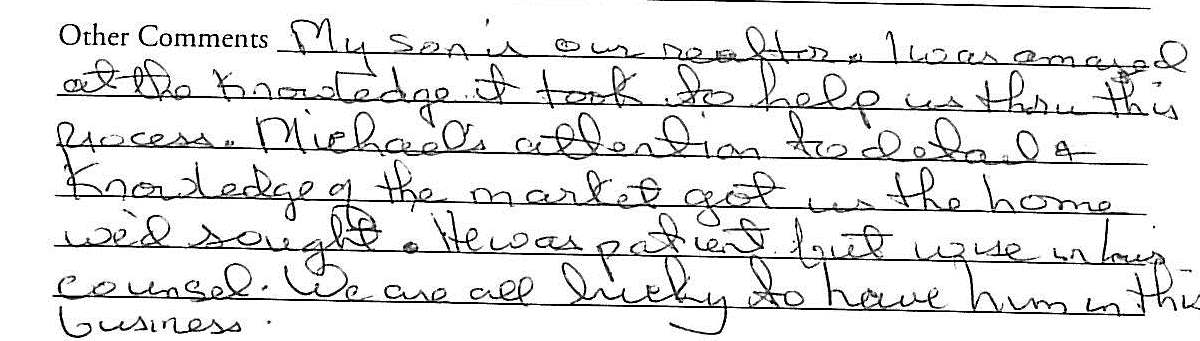 Other Comments My son is our realtor. I was amazed
at the knowledge it took to help us thru this
process. Michael's attention to detail &
Knowledge of the market got us the home
we'd sought. He was patient but wise in his
counsel. We are all lucky to have him in this
business.